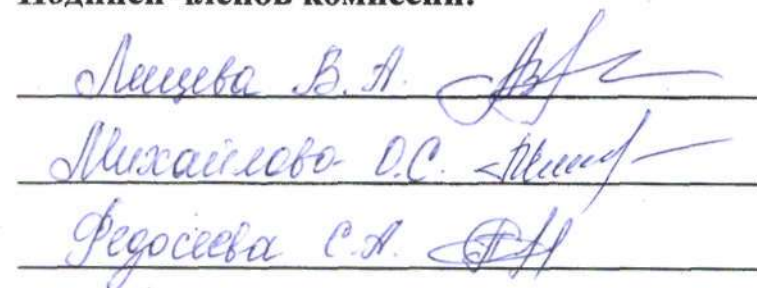 Подписи членов комиссии:
Лещева В. А.
Михайлова О.С.
Федосеева С.А.